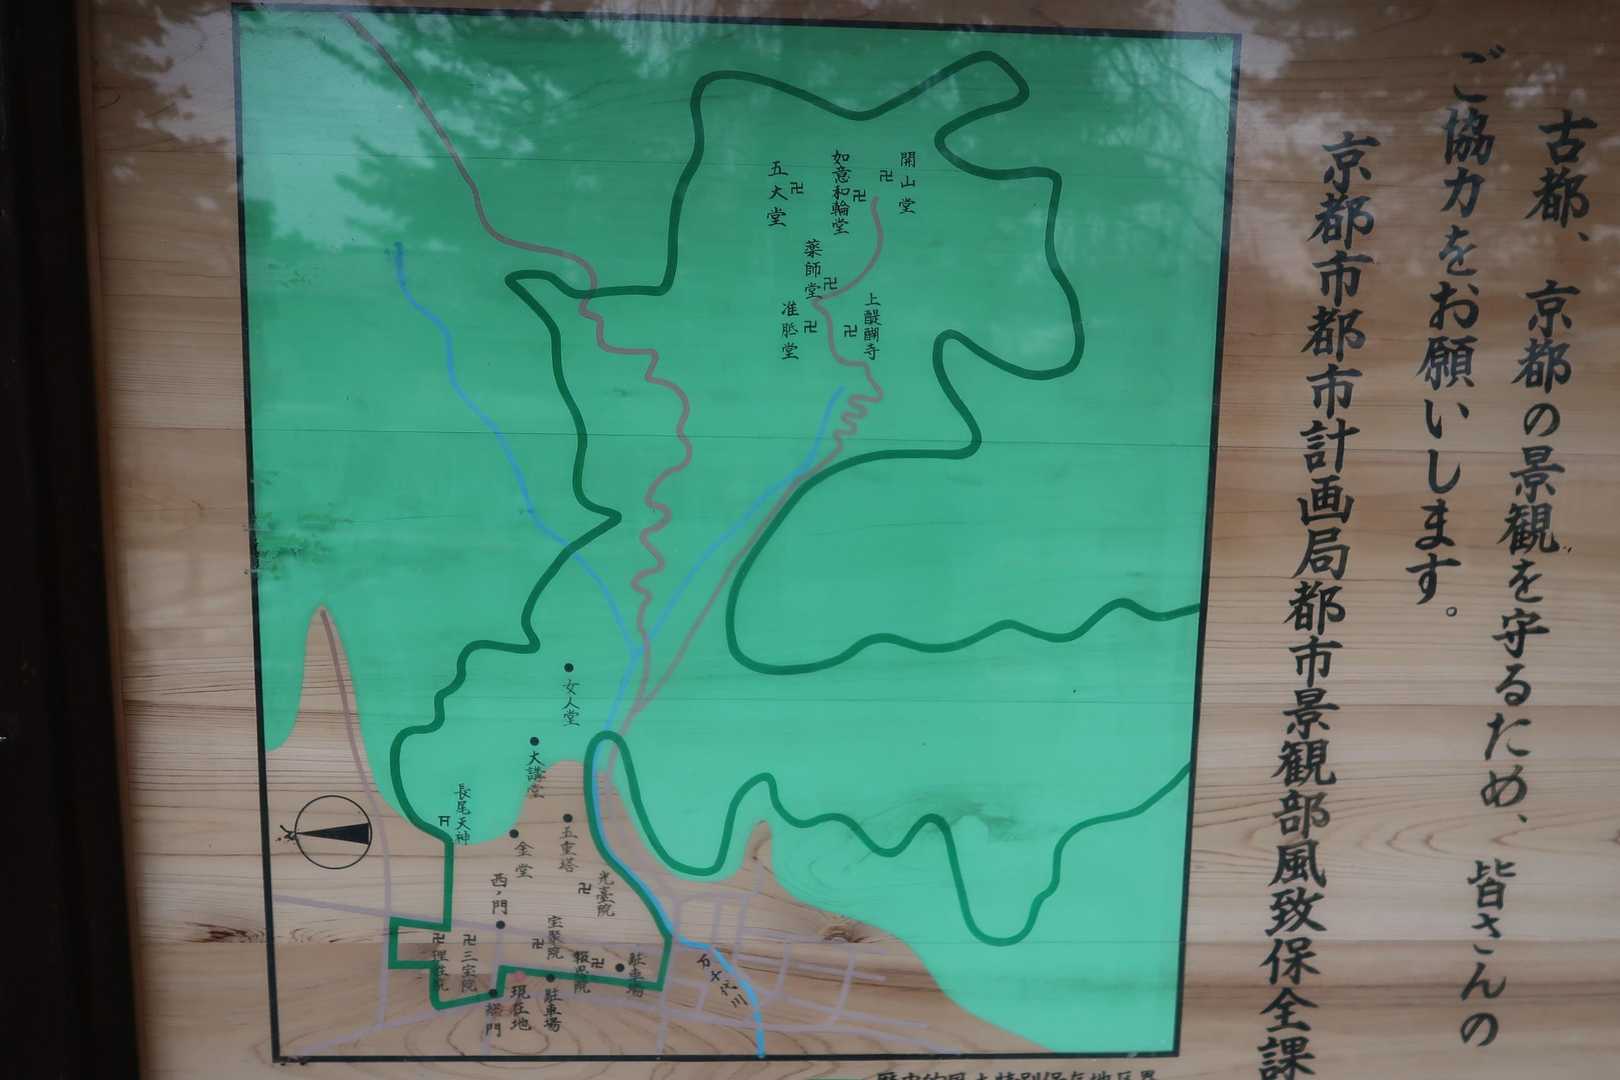 古都、京都の景観を守るため、皆さんの
ご協力をお願いします。
京都市都市計画局都市景観部風致保全課
開山堂
如意和輪堂
五大堂
薬師堂
准胝堂
上醍醐寺
女人堂
大講堂
長尾天神
五重塔
金堂
光臺院
西ノ門
宝聚院
報恩院
駐車場
三宝院
理性院
現在地
駐車場
総門
万千代川
歴史的風土特別保存地区界